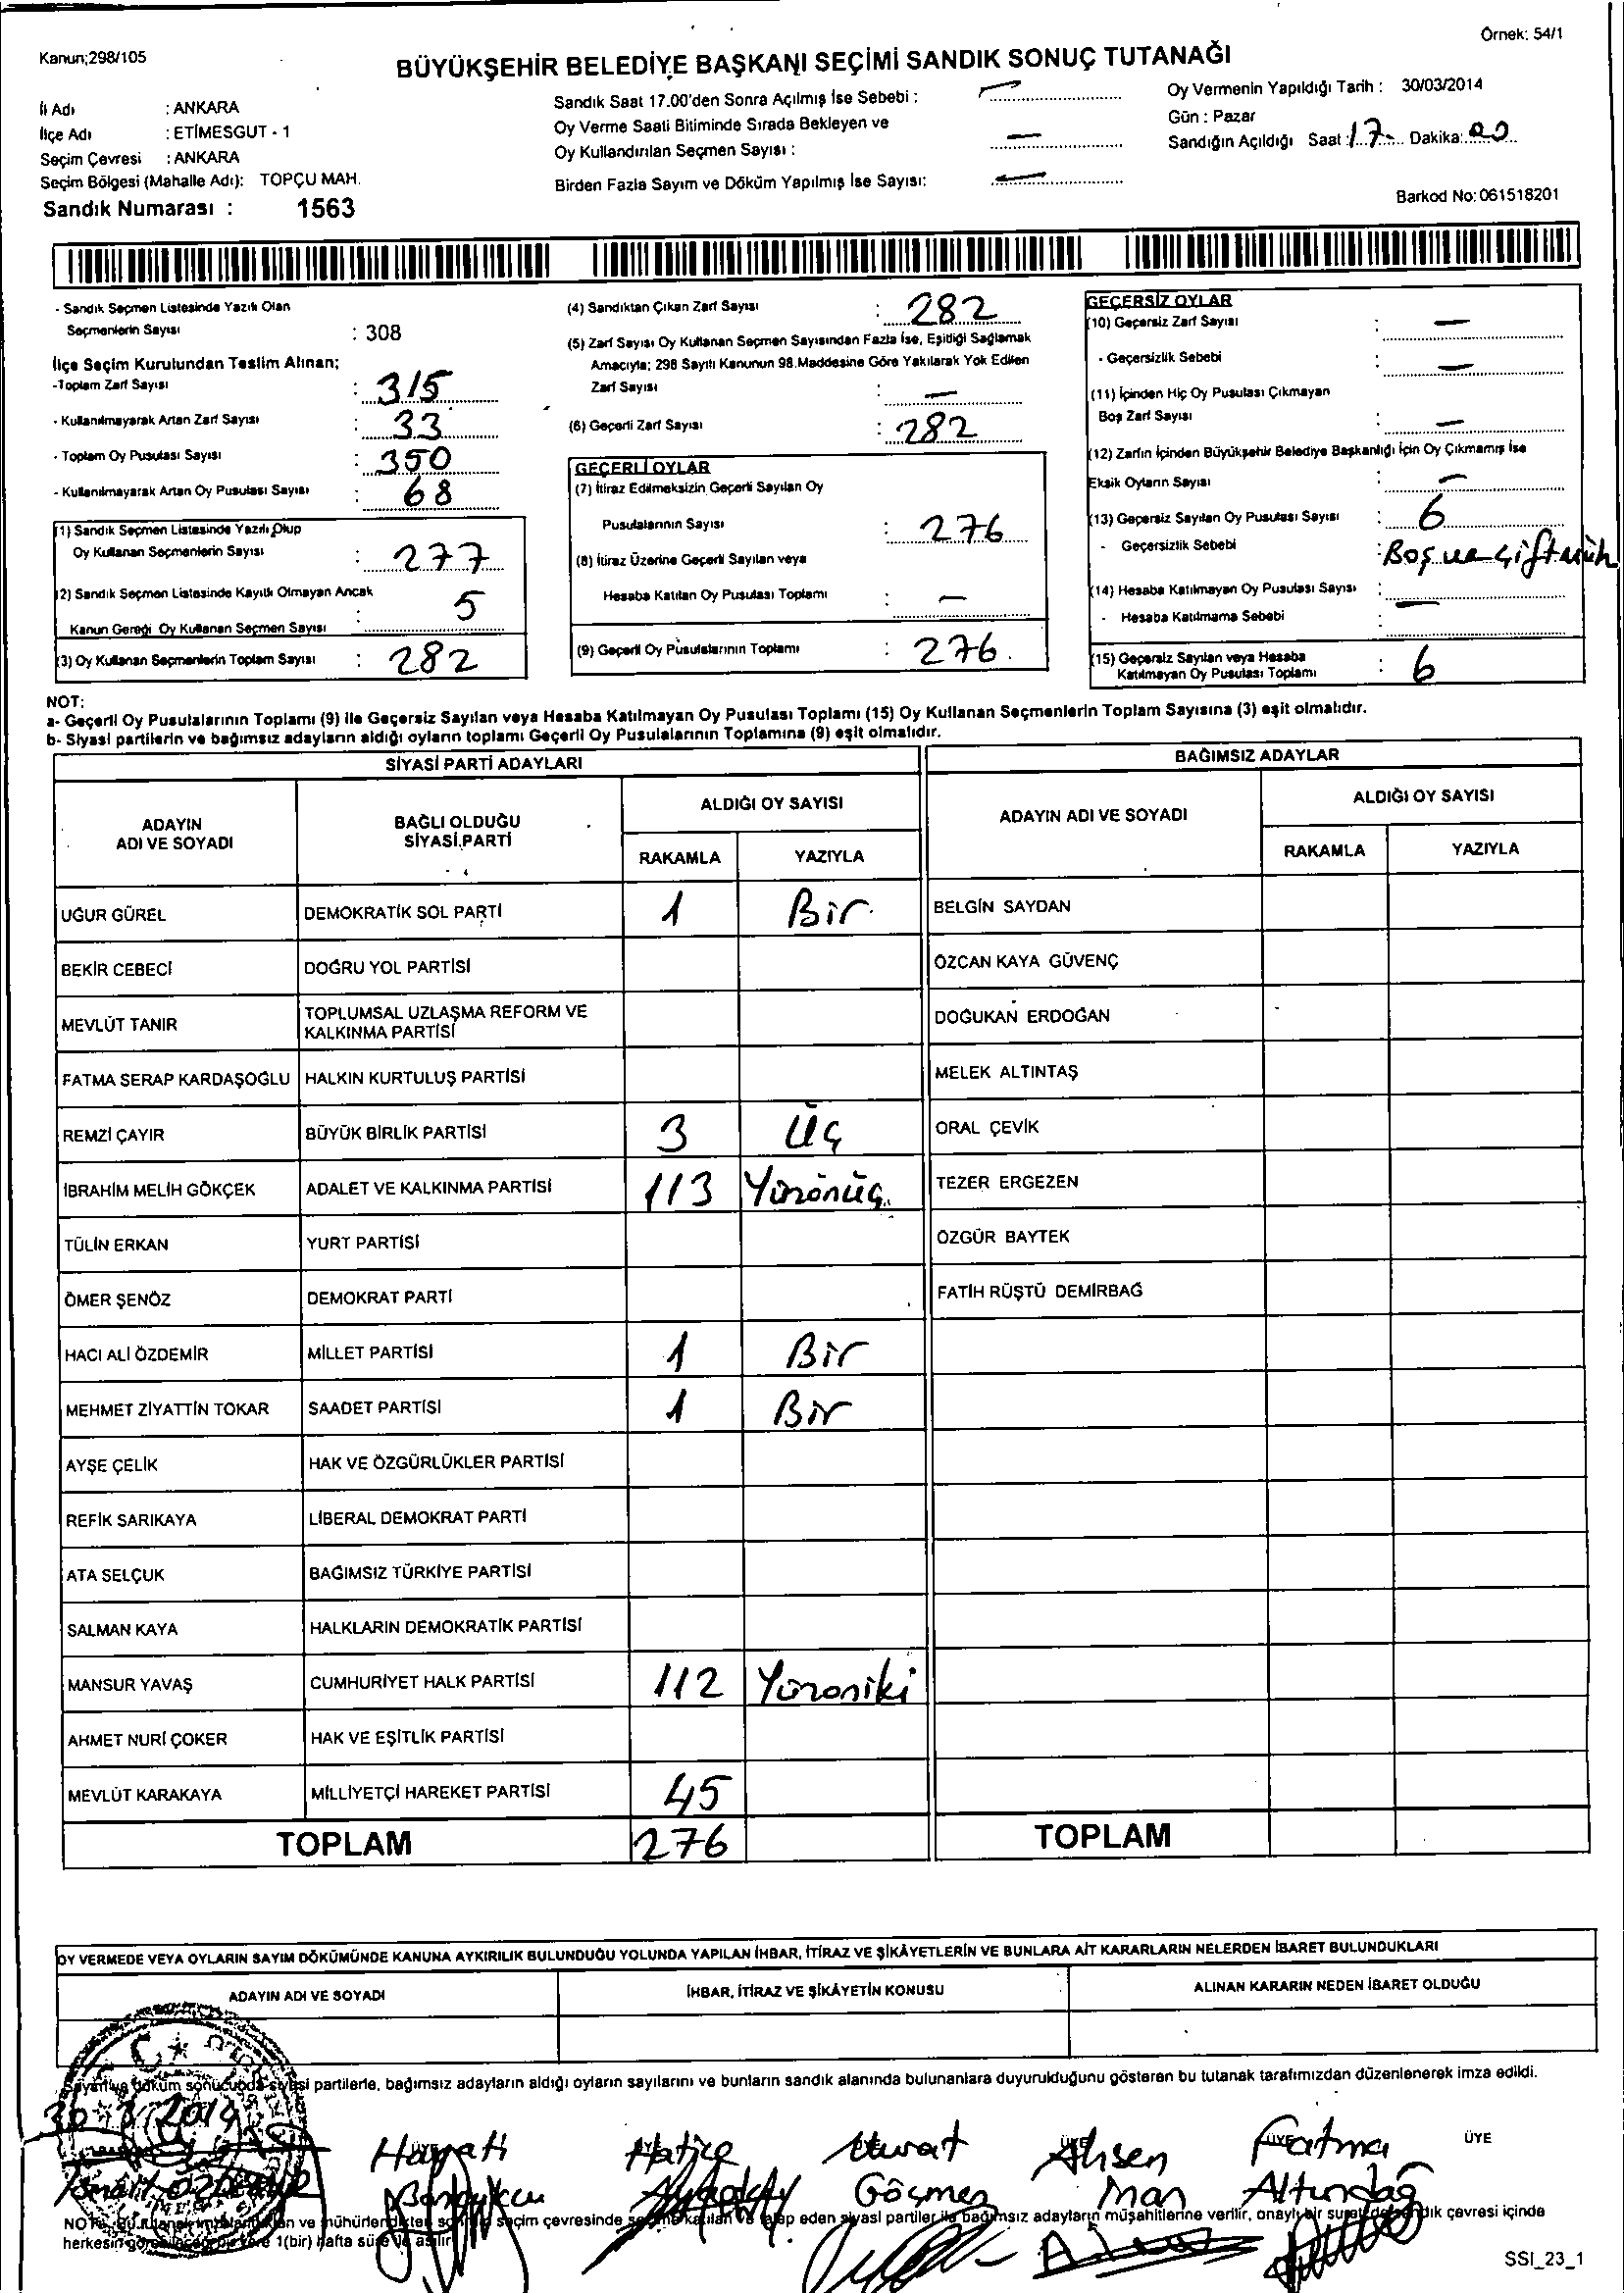 Örnek: 54/1
Kanun;298/105
BÜYÜKŞEHİR BELEDİYE BAŞKANI SEÇİMİ SANDIK SONUÇ TUTANAĞI
İl Adı : ANKARA
İlçe Adı : ETİMESGUT - 1
Seçim Çevresi : ANKARA
Seçim Bölgesi (Mahalle Adı): TOPÇU MAH.
Sandık Numarası : 1563
Sandık Saat 17.00'den Sonra Açılmış İse Sebebi : —
Oy Verme Saati Bitiminde Sırada Bekleyen ve
Oy Kullandırılan Seçmen Sayısı : —
Birden Fazla Sayım ve Döküm Yapılmış İse Sayısı: —
Oy Vermenin Yapıldığı Tarih : 30/03/2014
Gün : Pazar
Sandığın Açıldığı Saat : 17 Dakika: 00
Barkod No:061518201
- Sandık Seçmen Listesinde Yazılı Olan
Seçmenlerin Sayısı : 308
İlçe Seçim Kurulundan Teslim Alınan;
-Toplam Zarf Sayısı : 315
- Kullanılmayarak Artan Zarf Sayısı : 33
- Toplam Oy Pusulası Sayısı : 350
- Kullanılmayarak Artan Oy Pusulası Sayısı : 68
(1) Sandık Seçmen Listesinde Yazılı Olup
Oy Kullanan Seçmenlerin Sayısı : 277
(2) Sandık Seçmen Listesinde Kayıtlı Olmayan Ancak
Kanun Gereği Oy Kullanan Seçmen Sayısı : 5
(3) Oy Kullanan Seçmenlerin Toplam Sayısı : 282
(4) Sandıktan Çıkan Zarf Sayısı : 282
(5) Zarf Sayısı Oy Kullanan Seçmen Sayısından Fazla İse, Eşitliği Sağlamak
Amacıyla; 298 Sayılı Kanunun 98.Maddesine Göre Yakılarak Yok Edilen
Zarf Sayısı : —
(6) Geçerli Zarf Sayısı : 282
GEÇERLİ OYLAR
(7) İtiraz Edilmeksizin Geçerli Sayılan Oy
Pusulalarının Sayısı : 276
(8) İtiraz Üzerine Geçerli Sayılan veya
Hesaba Katılan Oy Pusulası Toplamı : —
(9) Geçerli Oy Pusulalarının Toplamı : 276
GEÇERSİZ OYLAR
(10) Geçersiz Zarf Sayısı : —
- Geçersizlik Sebebi : —
(11) İçinden Hiç Oy Pusulası Çıkmayan
Boş Zarf Sayısı : —
(12) Zarfın İçinden Büyükşehir Belediye Başkanlığı İçin Oy Çıkmamış İse
Eksik Oyların Sayısı : —
(13) Geçersiz Sayılan Oy Pusulası Sayısı : 6
- Geçersizlik Sebebi : Boş ve çift müh
(14) Hesaba Katılmayan Oy Pusulası Sayısı : —
- Hesaba Katılmama Sebebi
(15) Geçersiz Sayılan veya Hesaba
Katılmayan Oy Pusulası Toplamı : 6
NOT:
a- Geçerli Oy Pusulalarının Toplamı (9) ile Geçersiz Sayılan veya Hesaba Katılmayan Oy Pusulası Toplamı (15) Oy Kullanan Seçmenlerin Toplam Sayısına (3) eşit olmalıdır.
b- Siyasi partilerin ve bağımsız adayların aldığı oyların toplamı Geçerli Oy Pusulalarının Toplamına (9) eşit olmalıdır.
SİYASİ PARTİ ADAYLARI
ADAYIN ADI VE SOYADI BAĞLI OLDUĞU SİYASİ PARTİ ALDIĞI OY SAYISI RAKAMLA YAZIYLA
UĞUR GÜREL DEMOKRATİK SOL PARTİ 1 Bir
BEKİR CEBECİ DOĞRU YOL PARTİSİ
MEVLÜT TANIR TOPLUMSAL UZLAŞMA REFORM VE KALKINMA PARTİSİ
FATMA SERAP KARDAŞOĞLU HALKIN KURTULUŞ PARTİSİ
REMZİ ÇAYIR BÜYÜK BİRLİK PARTİSİ 3 Üç
İBRAHİM MELİH GÖKÇEK ADALET VE KALKINMA PARTİSİ 113 Yüzönüç.
TÜLİN ERKAN YURT PARTİSİ
ÖMER ŞENÖZ DEMOKRAT PARTİ
HACI ALİ ÖZDEMİR MİLLET PARTİSİ 1 Bir
MEHMET ZİYATTİN TOKAR SAADET PARTİSİ 1 Bir
AYŞE ÇELİK HAK VE ÖZGÜRLÜKLER PARTİSİ
REFİK SARIKAYA LİBERAL DEMOKRAT PARTİ
ATA SELÇUK BAĞIMSIZ TÜRKİYE PARTİSİ
SALMAN KAYA HALKLARIN DEMOKRATİK PARTİSİ
MANSUR YAVAŞ CUMHURİYET HALK PARTİSİ 112 Yüzoniki
AHMET NURİ ÇOKER HAK VE EŞİTLİK PARTİSİ
MEVLÜT KARAKAYA MİLLİYETÇİ HAREKET PARTİSİ 45
TOPLAM 276
BAĞIMSIZ ADAYLAR
ADAYIN ADI VE SOYADI ALDIĞI OY SAYISI RAKAMLA YAZIYLA
BELGİN SAYDAN
ÖZCAN KAYA GÜVENÇ
DOĞUKAN ERDOĞAN
MELEK ALTINTAŞ
ORAL ÇEVİK
TEZER ERGEZEN
ÖZGÜR BAYTEK
FATİH RÜŞTÜ DEMİRBAĞ
TOPLAM
OY VERMEDE VEYA OYLARIN SAYIM DÖKÜMÜNDE KANUNA AYKIRILIK BULUNDUĞU YOLUNDA YAPILAN İHBAR, İTİRAZ VE ŞİKÂYETLERİN VE BUNLARA AİT KARARLARIN NELERDEN İBARET BULUNDUKLARI
ADAYIN ADI VE SOYADI İHBAR, İTİRAZ VE ŞİKÂYETİN KONUSU ALINAN KARARIN NEDEN İBARET OLDUĞU
döküm sonucunda siyasi partilerle, bağımsız adayların aldığı oyların sayılarını ve bunların sandık alanında bulunanlara duyurulduğunu gösteren bu tutanak tarafımızdan düzenlenerek imza edildi.
30 3 2014
Hayati Hatice Murat Ahsen Fatma ÜYE
Göçmen İnan Altındağ
seçim çevresinde eden siyasi partiler ile bağımsız adayların müşahitlerine verilir, onaylı bir sureti de sandık çevresi içinde
herkesin 1(bir) hafta süre ile asılır.
SSI_23_1